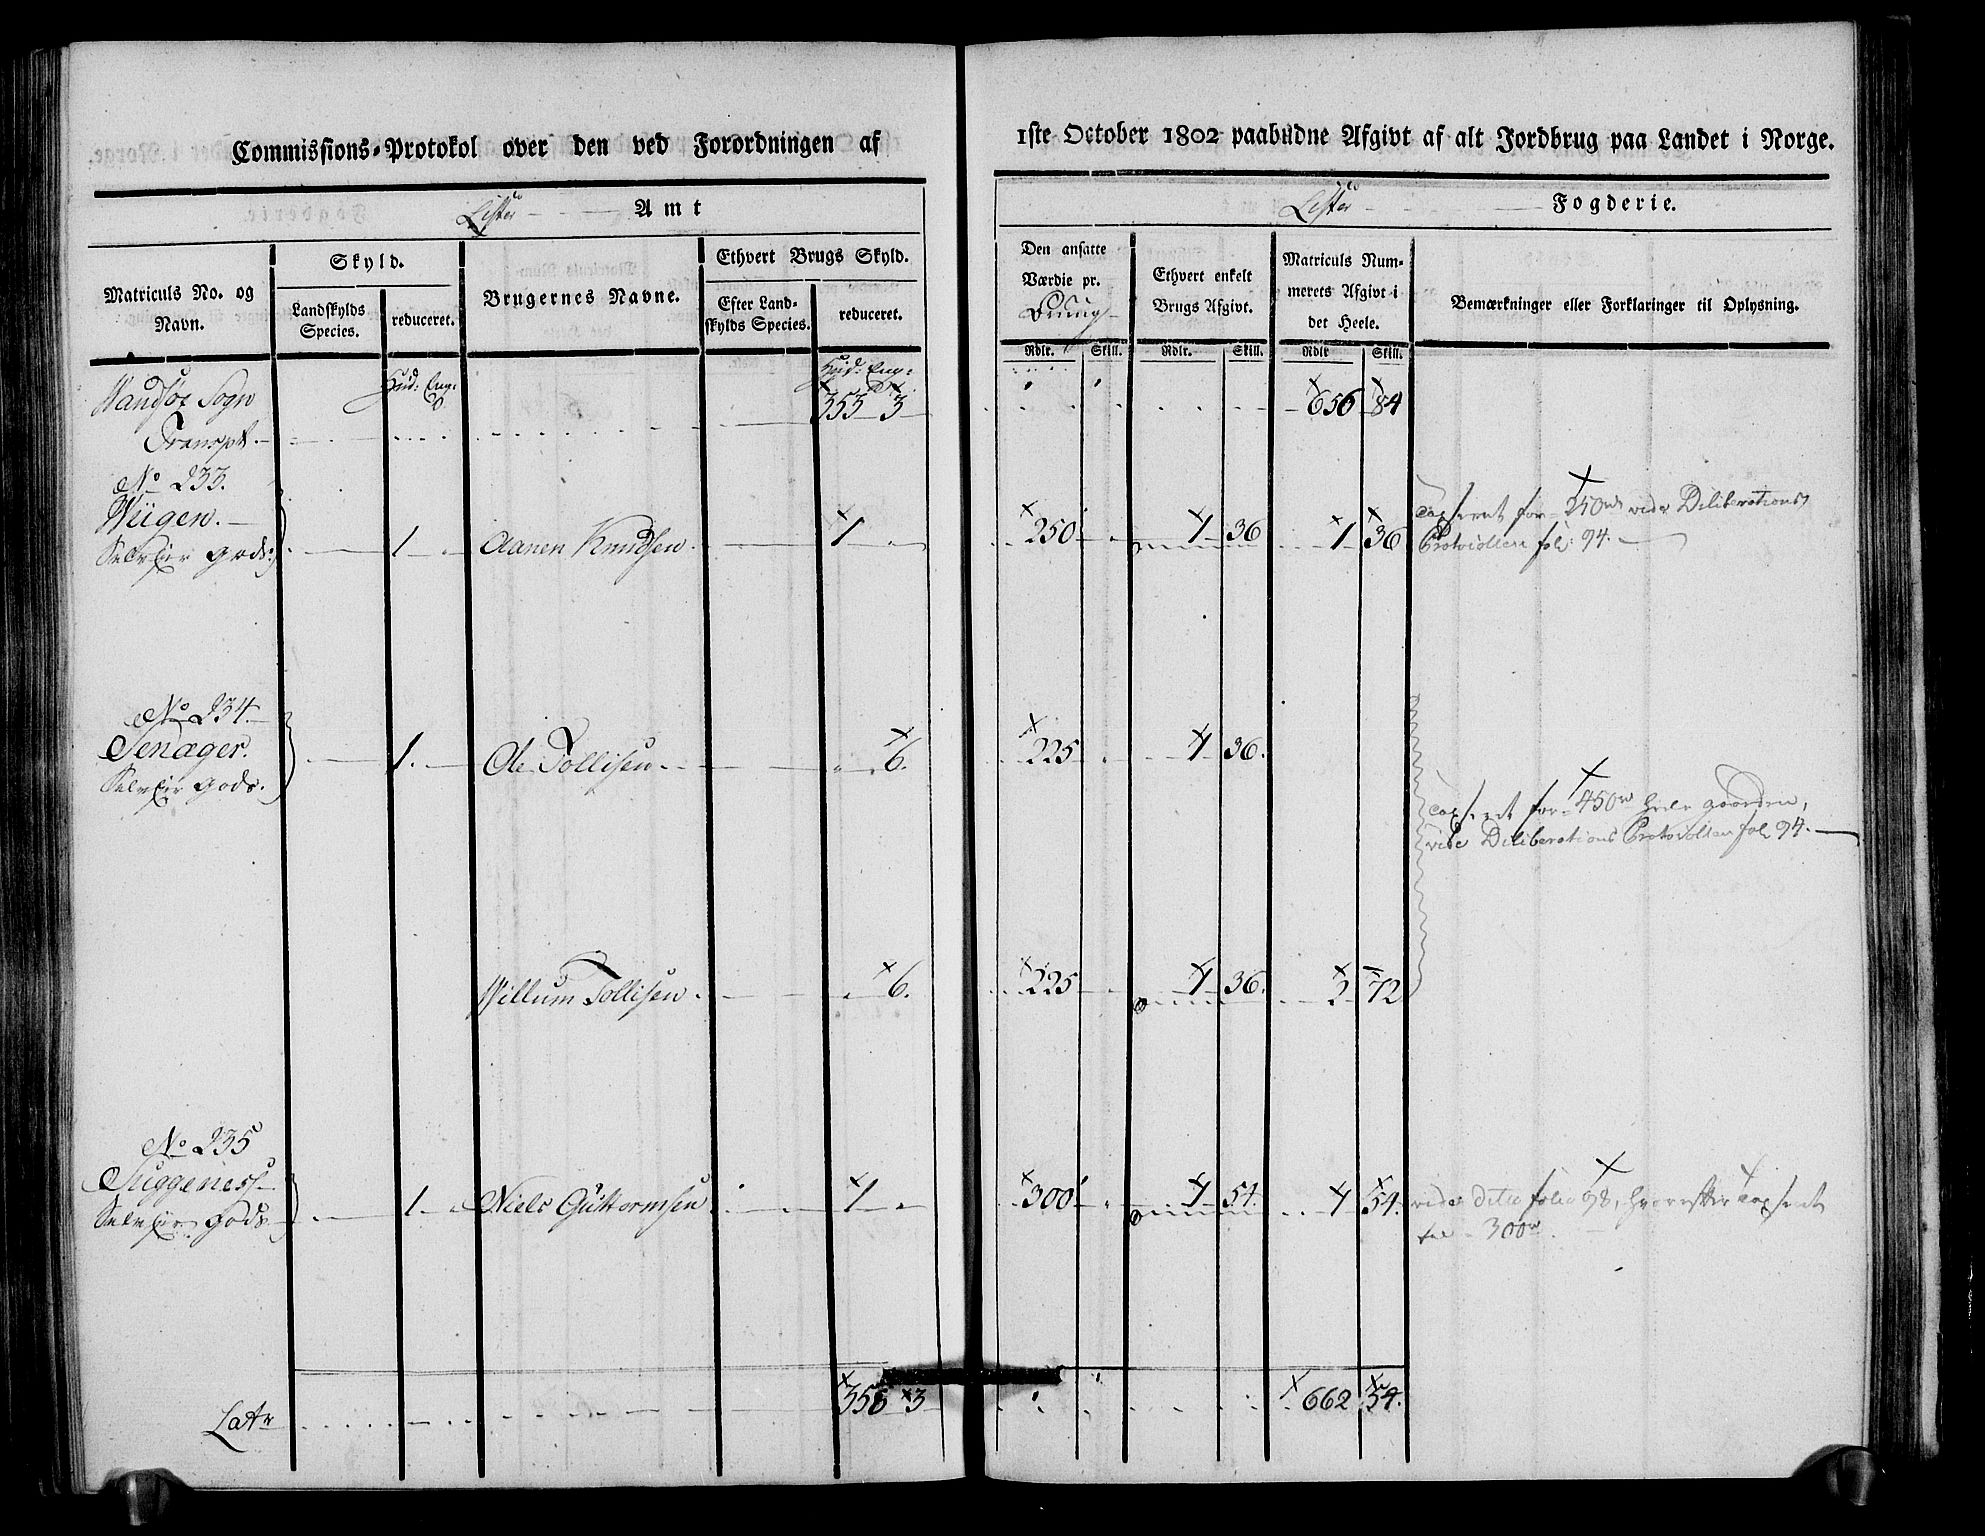 Commissions-Protokol over den ved Forordningen af
Lister Amt
Matriculs No. og Navn.
Skyld.
Landskylds Species.
reduceret.
Brugernes Navne.
Ethvert Brugs Skyld.
Efter Landskylds Species.
reduceret.
Hud: Eng:
Hud: Eng:
Sogn
353 3
Transpt.
No 233.
Selvejer Gods. 1 Aanen Knudsen 1
No 234.
Senager.
Selvejer Gods. 1. Ole Tollisen 6.
Willum Tollisen 6.
No 235
Selvejer Gods 1 Niels Guttormsen 1
Latr 356 3
1ste October 1802 paabudne Afgivt af alt Jordbrug paa Landet i Norge.
Lister Fogderie.
Den ansatte Værdie pr.
Ethvert enkelt Brugs Afgivt.
Matriculs Nummerets Afgivt i det Heele.
Bemærkninger eller Forklaringer til Oplysning.
Rdlr. Skill. Rdlr. Skill. Rdlr Skill.
656 84
250 1 36 1 36 taxseret for 250 rd vide Deliberations
Protocollen fol: 94.
225 1 36.
taxseret for 450 rd hele gaarden,
vide Deliberations Protocollen fol 94.
225 1 36. 2 72
300 1 54. 1 54. vide dito folio 98, hvorefter taxseret
for 300 rd.
662 54.